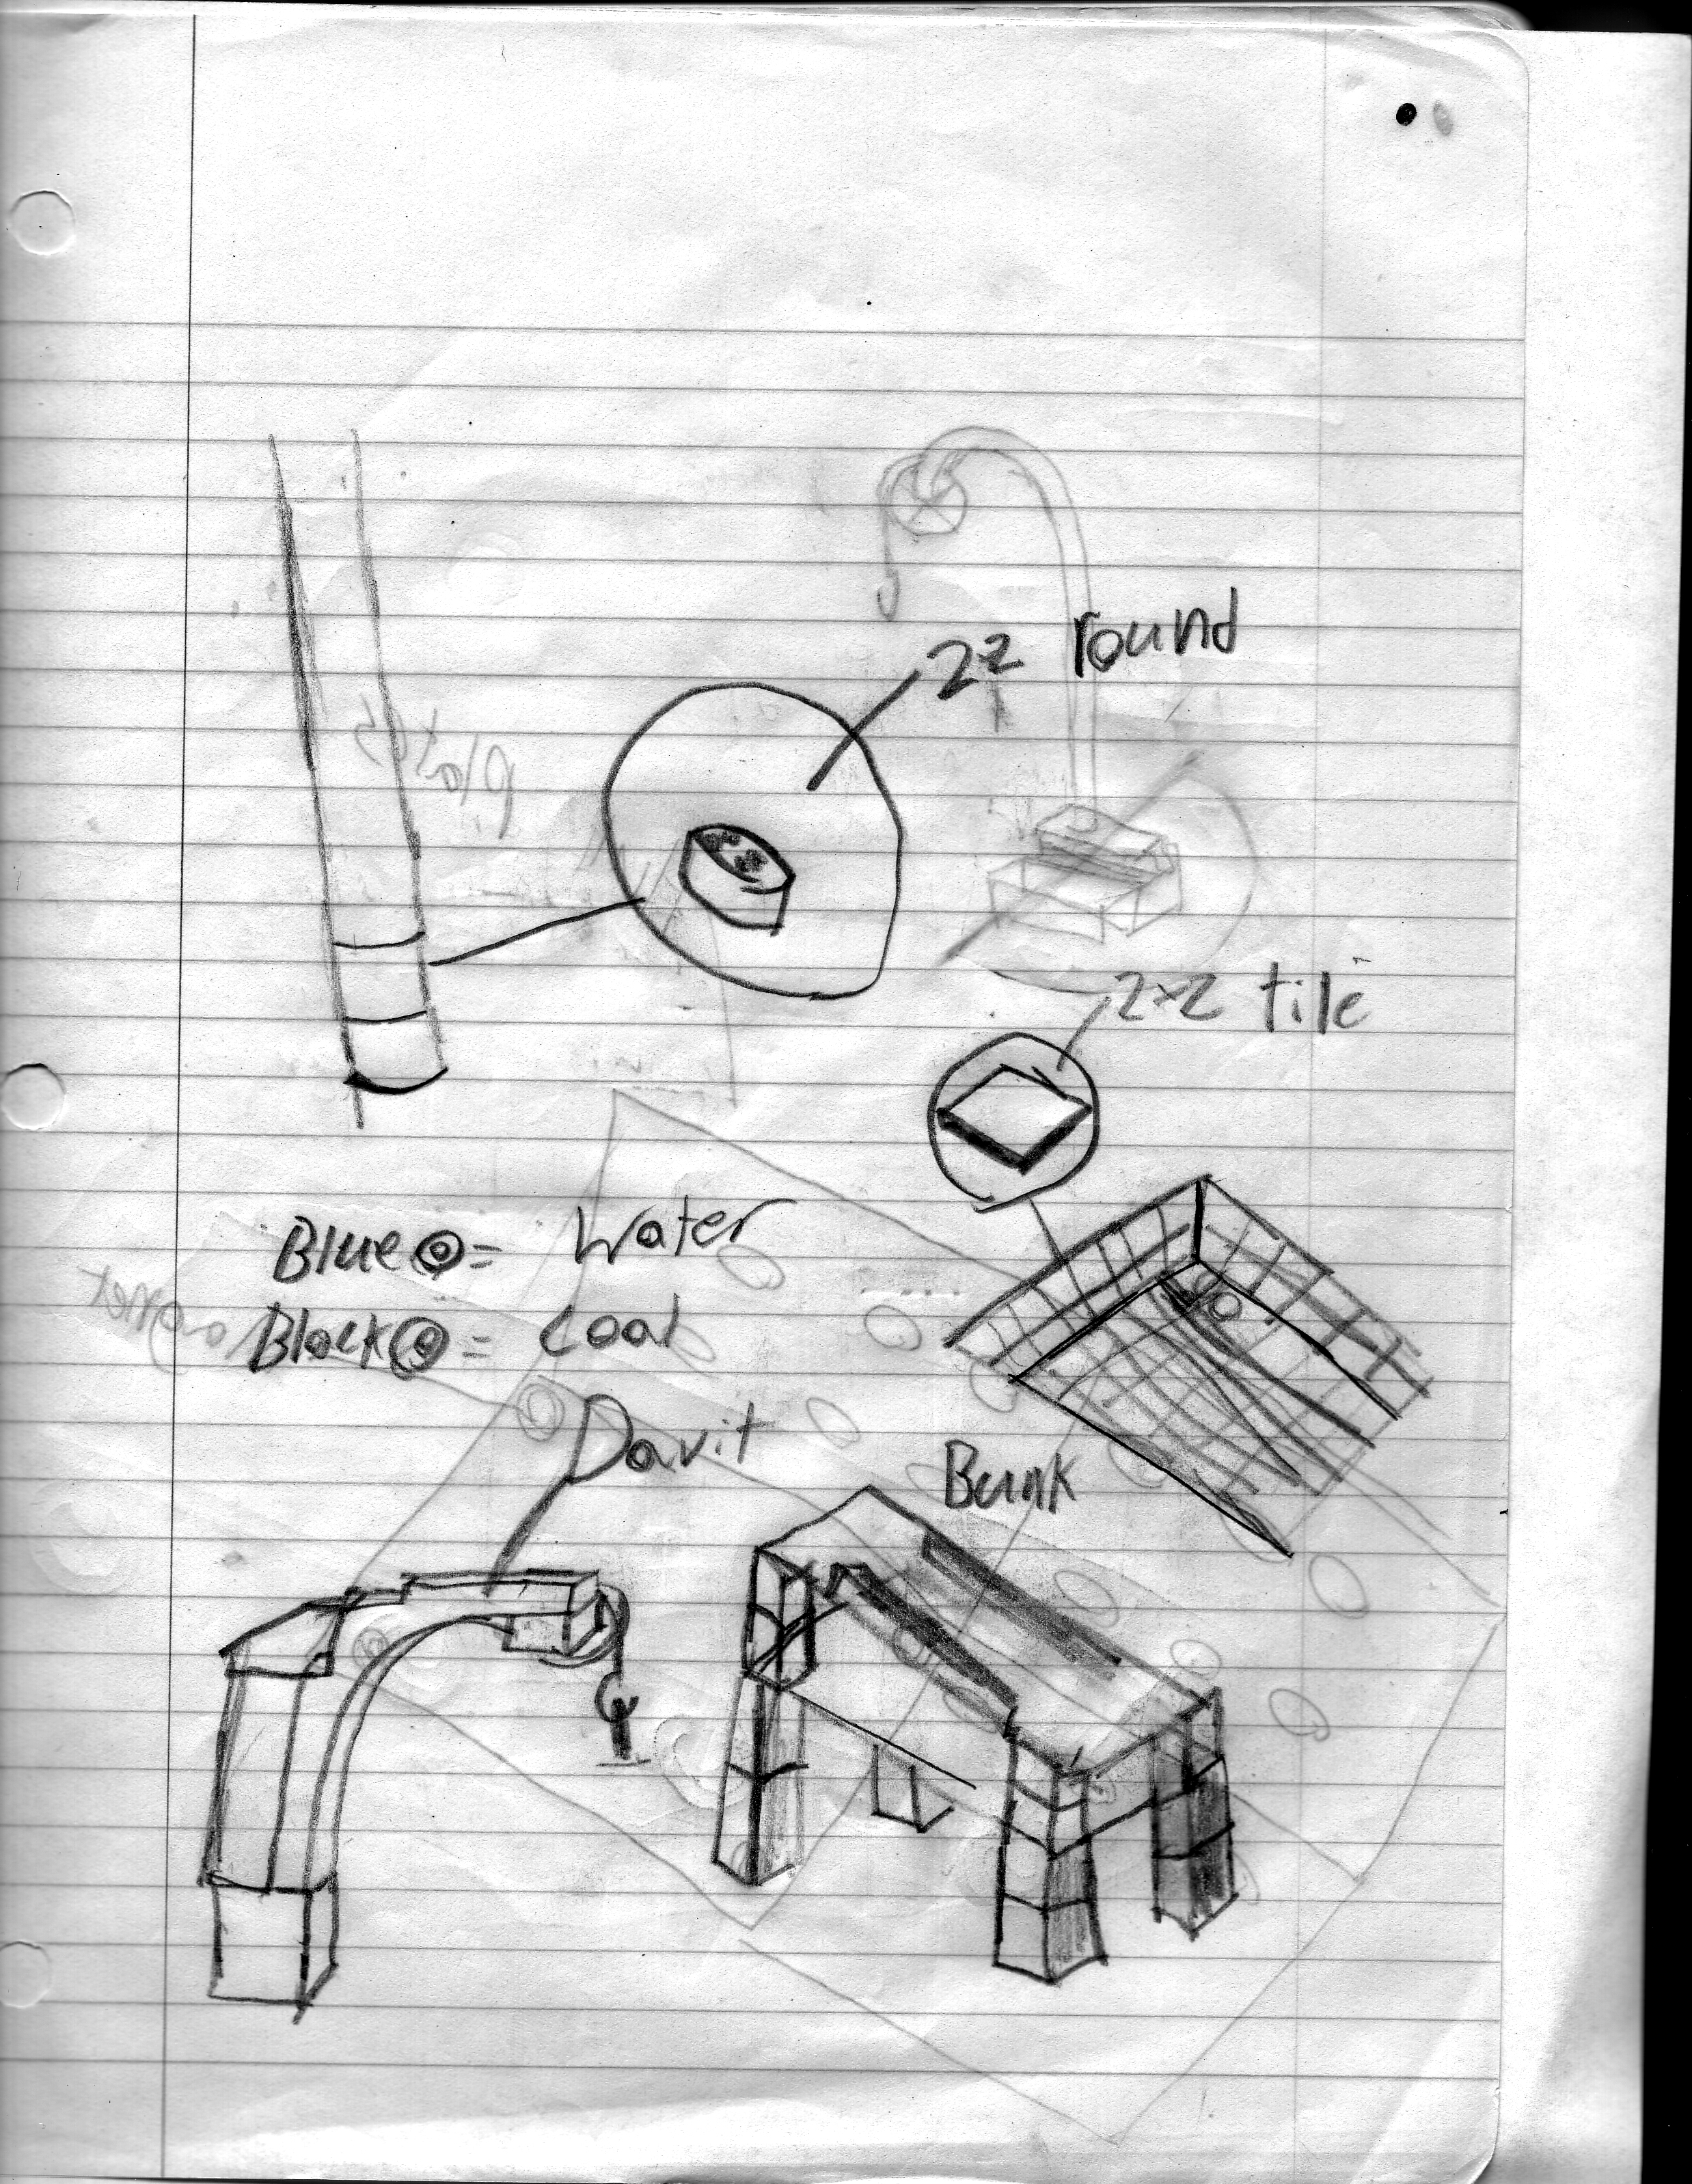 22 round
2x2 tile
Blue ◎ = Water
Black ◎ = Coal
Davit
Bunk